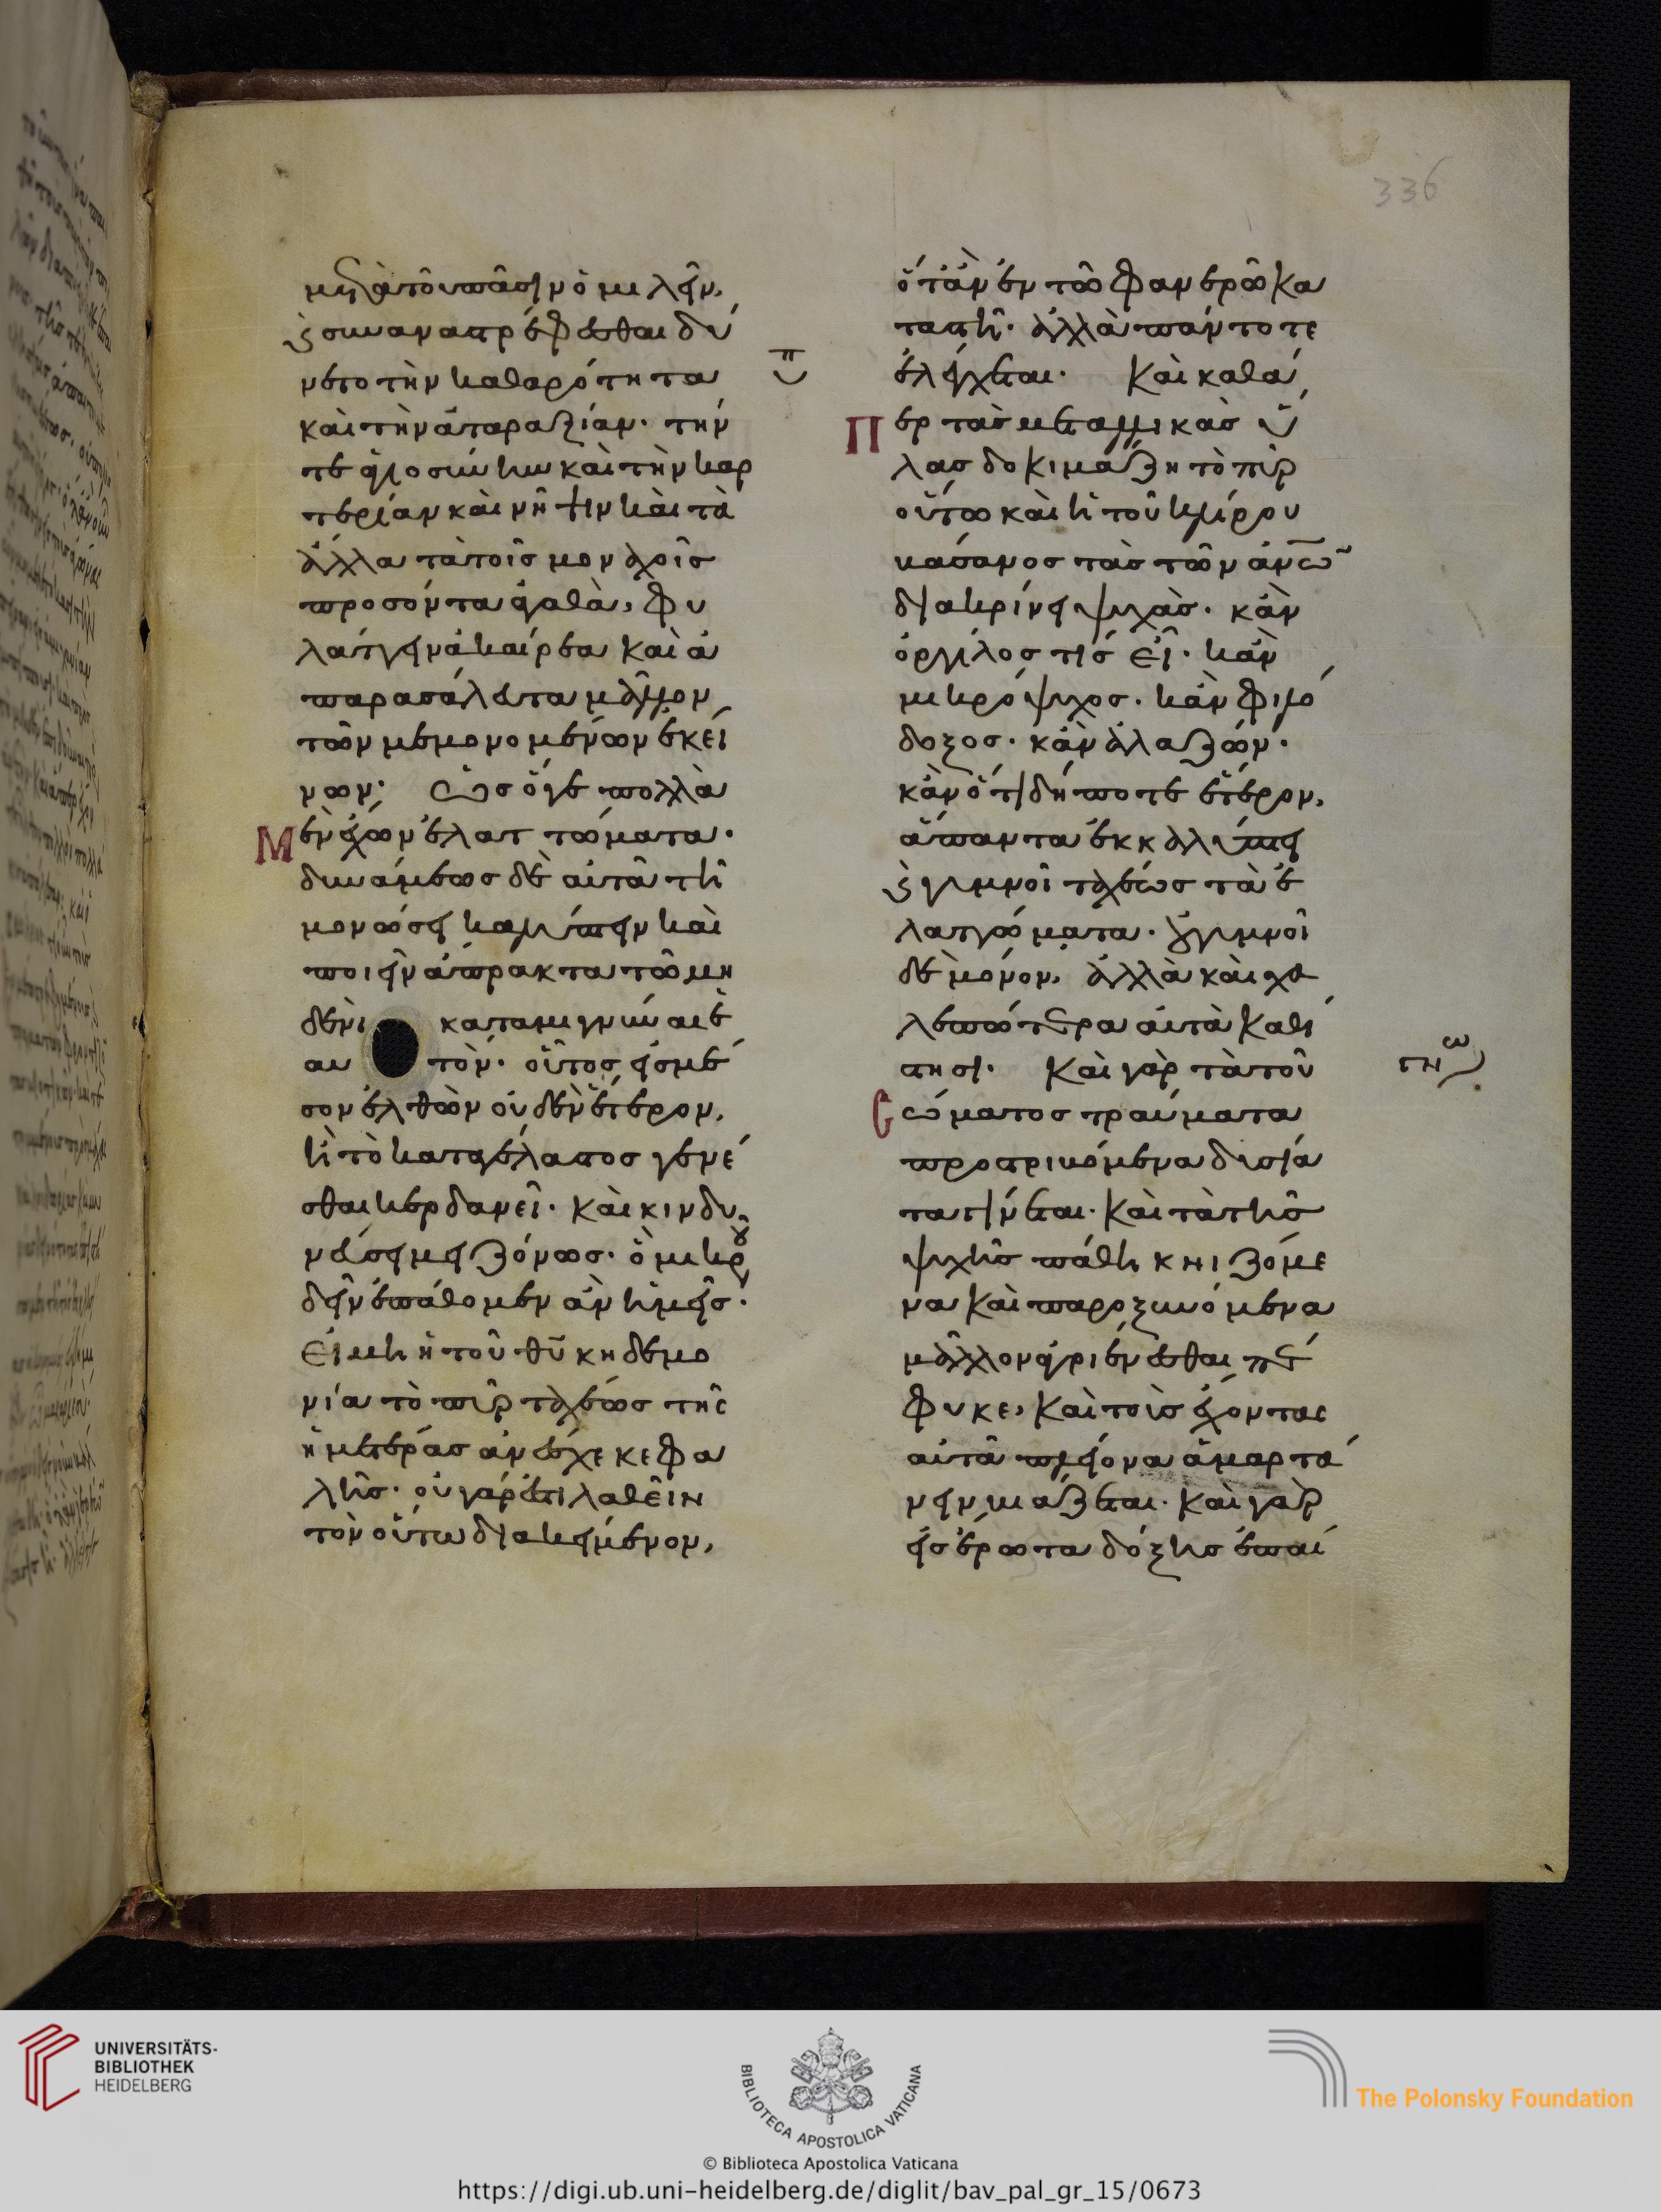 336
μετὰ τοῦ πᾶσιν ὁμιλεῖν,
καὶ συναναστρέφεσθαι δύ
ναιτο τὴν καθαρότητα
καὶ τὴν ἀταραξίαν· τήν
τε ἁγιοσύνην καὶ τὴν καρ
τερίαν καὶ νῆψιν καὶ τὰ
ἄλλα τὰ τοῖς μοναχοῖς
προσόντα ἀγαθὰ, φυ
λάττειν ἀκαίρεα καὶ ἀ
παρασάλευτα μᾶλλον
τῶν μεμονομένων ἐκεί
νων· Ὡς ὅγε πολλὰ
Μὲν ἔχων ἐλαττώματα·
δυνάμενος δὲ αὐτὰ τῇ
μονώσει καλύπτειν καὶ
ποιεῖν ἄπρακτα τῷ μη
δενὶ καταμιγνύναι ἑ
αυτόν· οὗτος εἰς μέ
σον ἐλθὼν οὐδὲν ἕτερον,
ἢ τὸ καταγέλαστος γενέ
σθαι κερδανεῖ· καὶ κινδυ
νεύσει μειζόνως· ὃ μικροῦ
δεῖν ἐπάθομεν ἂν ἡμεῖς·
Εἰ μὴ ἡ τοῦ θῦ κηδεμο
νία τὸ πῦρ ταχέως τῆς
ἡμετέρας ἀνέσχε κεφα
λῆς· οὐ γὰρ ἔστι λαθεῖν
τὸν οὕτω διακείμενον,
ὅταν ἐν τῷ φανερῷ κα
ταστῇ· ἀλλὰ πάντοτε
ἐλέγχεται· Καὶ καθά
Περ τὰς μεταλλικὰς ὕ
λας δοκιμάζει τὸ πῦρ
οὕτω καὶ ἡ τοῦ κλήρου
βάσανος τὰς τῶν ἀνῶν
διακρίνει ψυχάς· κἂν
ὀργίλος τίς εἴη· κἂν
μικρόψυχος· κἂν φιλό
δοξος· κἂν ἀλαζών·
κἂν ὁτιδήποτε ἕτερον,
ἅπαντα ἐκκαλύπτει
καὶ γυμνοῖ ταχέως τὰ ἐ
λαττώματα· οὐ γυμνοῖ
δὲ μόνον, ἀλλὰ καὶ χα
λεπώτερα αὐτὰ καθί
στησι· Καὶ γὰρ τὰ τοῦ
Σώματος τραύματα
προστριβόμενα δυσία
τα γίνεται· Καὶ τὰ τῆς
ψυχῆς πάθη κνιζόμε
να καὶ παροξυνόμενα
μᾶλλον ἀγριαίνεσθαι πέ
φυκε, καὶ τοὺς ἔχοντας
αὐτὰ πλείονα ἁμαρτά
νειν βιάζεται· καὶ γὰρ
εἰς ἔρωτα δόξης ἐπαί
UNIVERSITÄTS-
BIBLIOTHEK
HEIDELBERG
BIBLIOTECA APOSTOLICA VATICANA
The Polonsky Foundation
© Biblioteca Apostolica Vaticana
https://digi.ub.uni-heidelberg.de/diglit/bav_pal_gr_15/0673